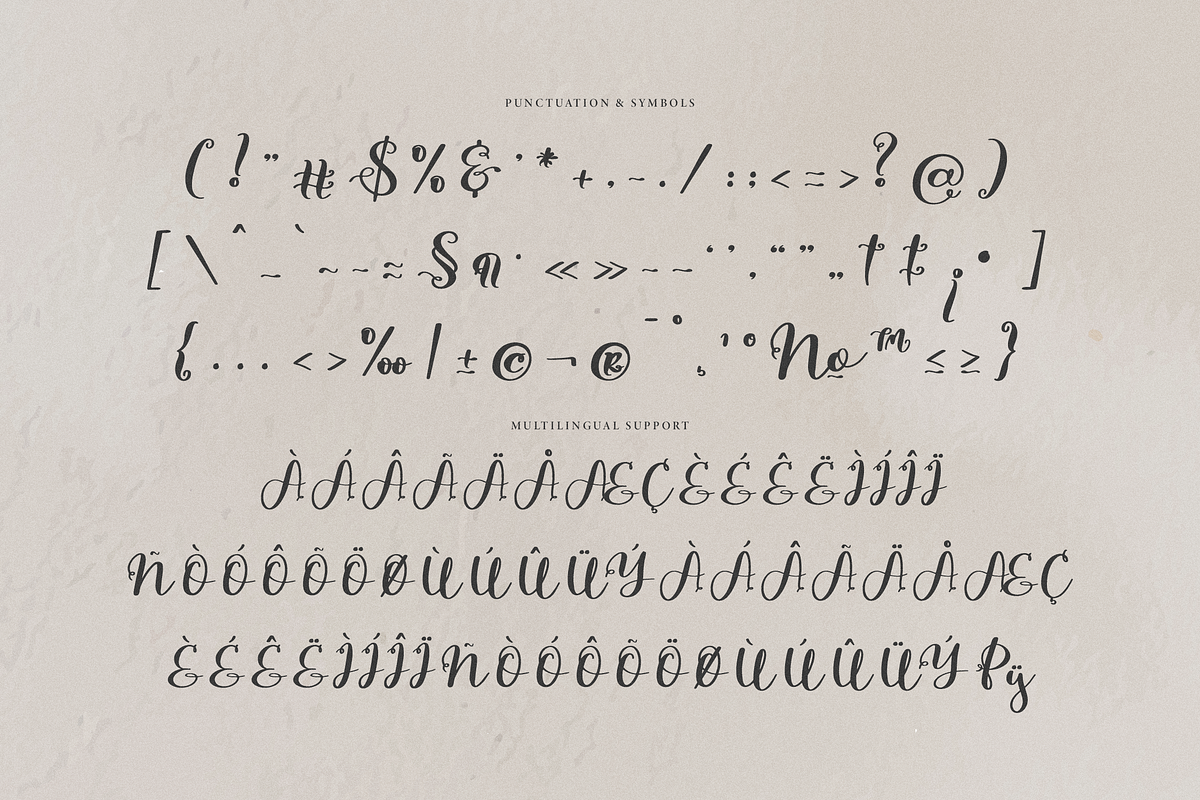 PUNCTUATION & SYMBOLS
( ! " # $ % & ' * + , - . / : ; < = > ? @ )
[ \ ^ _ ` ~ - ≈ § ¶ · « » – — ‘ ’ ‚ “ ” „ † ‡ ¿ • ]
{ … < > ‰ | ± © ¬ ® ¯ ° ¸ ¹ º № ™ ≤ ≥ }
MULTILINGUAL SUPPORT
ÀÁÂÃÄÅÆÇÈÉÊËÌÍÎÏ
ÑÒÓÔÕÖØÙÚÛÜÝÀÁÂÃÄÅÆÇ
ÈÉÊËÌÍÎÏÑÒÓÔÕÖØÙÚÛÜÝÞÿ